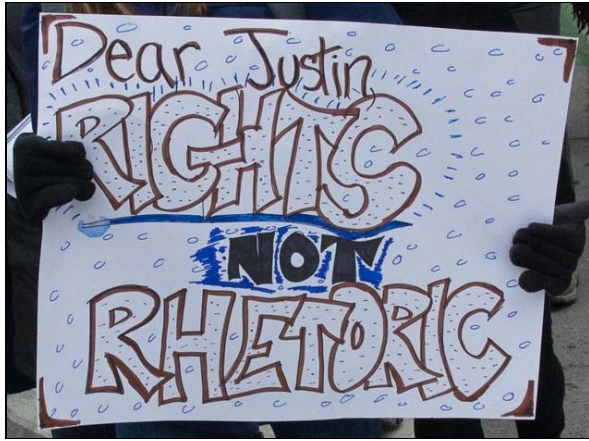 Dear Justin,
RIGHTS
NOT
RHETORIC